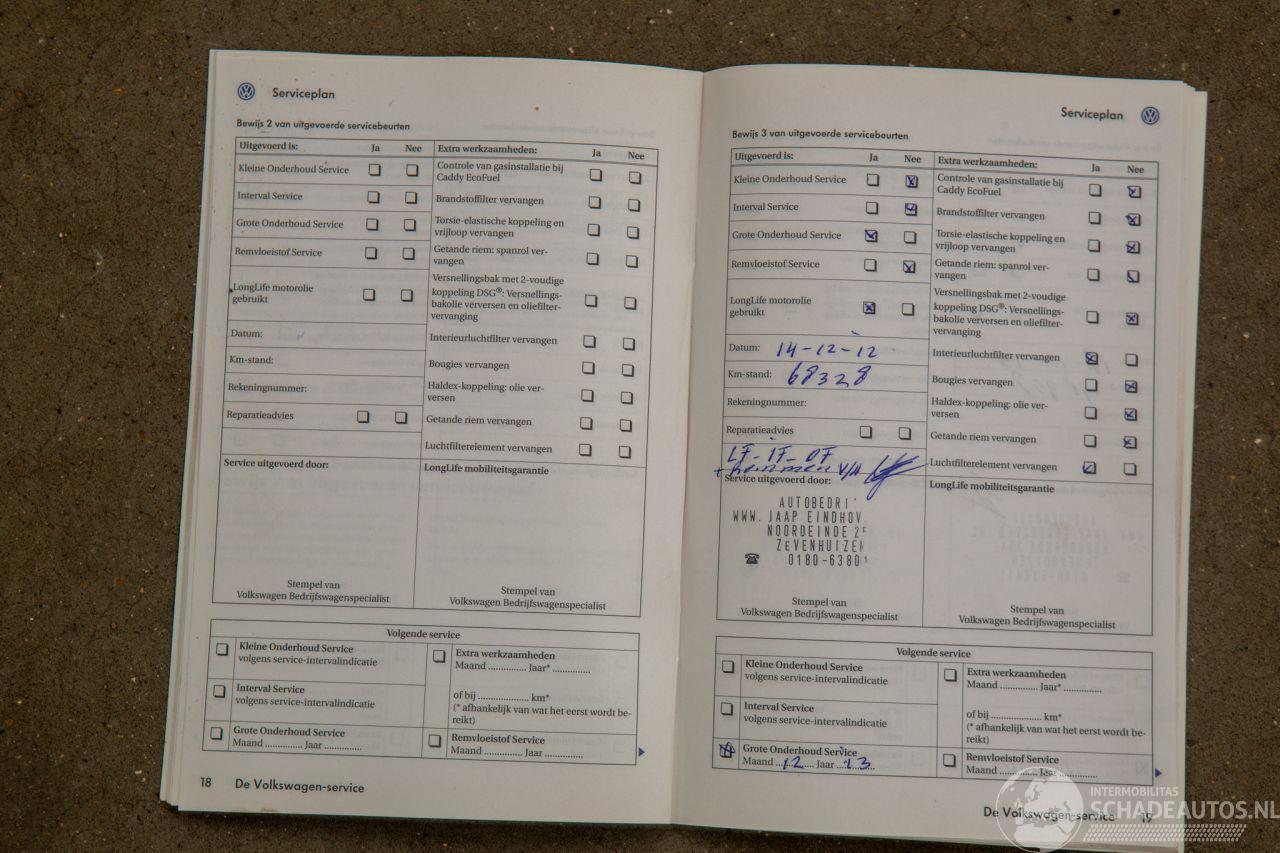 Serviceplan
Bewijs 2 van uitgevoerde servicebeurten
Uitgevoerd is: Ja Nee
Kleine Onderhoud Service
Interval Service
Grote Onderhoud Service
Remvloeistof Service
LongLife motorolie
gebruikt
Datum:
Km-stand:
Rekeningnummer:
Reparatieadvies
Extra werkzaamheden: Ja Nee
Controle van gasinstallatie bij
Caddy EcoFuel
Brandstoffilter vervangen
Torsie-elastische koppeling en
vrijloop vervangen
Getande riem: spanrol ver-
vangen
Versnellingsbak met 2-voudige
koppeling DSG®: Versnellings-
bakolie verversen en oliefilter-
vervanging
Interieurluchtfilter vervangen
Bougies vervangen
Haldex-koppeling: olie ver-
versen
Getande riem vervangen
Luchtfilterelement vervangen
Service uitgevoerd door:
Stempel van
Volkswagen Bedrijfswagenspecialist
LongLife mobiliteitsgarantie
Stempel van
Volkswagen Bedrijfswagenspecialist
Volgende service
Kleine Onderhoud Service
volgens service-intervalindicatie
Interval Service
volgens service-intervalindicatie
Grote Onderhoud Service
Maand ............. Jaar .............
Extra werkzaamheden
Maand ............. Jaar* .............
of bij .................. km*
(* afhankelijk van wat het eerst wordt be-
reikt)
Remvloeistof Service
Maand ............. Jaar .............
18 De Volkswagen-service
Serviceplan
Bewijs 3 van uitgevoerde servicebeurten
Uitgevoerd is: Ja Nee
Kleine Onderhoud Service
Interval Service
Grote Onderhoud Service
Remvloeistof Service
LongLife motorolie
gebruikt
Datum: 14-12-12
Km-stand: 68328
Rekeningnummer:
Reparatieadvies
LF-IF-OF
+ remmen V/A
Extra werkzaamheden: Ja Nee
Controle van gasinstallatie bij
Caddy EcoFuel
Brandstoffilter vervangen
Torsie-elastische koppeling en
vrijloop vervangen
Getande riem: spanrol ver-
vangen
Versnellingsbak met 2-voudige
koppeling DSG®: Versnellings-
bakolie verversen en oliefilter-
vervanging
Interieurluchtfilter vervangen
Bougies vervangen
Haldex-koppeling: olie ver-
versen
Getande riem vervangen
Luchtfilterelement vervangen
Service uitgevoerd door:
AUTOBEDRI
WWW. JAAP EINDHOV
NOORDEINDE
ZEVENHUIZEN
0180-6380
Stempel van
Volkswagen Bedrijfswagenspecialist
LongLife mobiliteitsgarantie
Stempel van
Volkswagen Bedrijfswagenspecialist
Volgende service
Kleine Onderhoud Service
volgens service-intervalindicatie
Interval Service
volgens service-intervalindicatie
Grote Onderhoud Service
Maand 12 Jaar 13
Extra werkzaamheden
Maand ............. Jaar* .............
of bij .................. km*
(* afhankelijk van wat het eerst wordt be-
reikt)
Remvloeistof Service
Maand ............. Jaar .............
De Volkswagen-service 19
INTERMOBILITAS
SCHADEAUTOS.NL